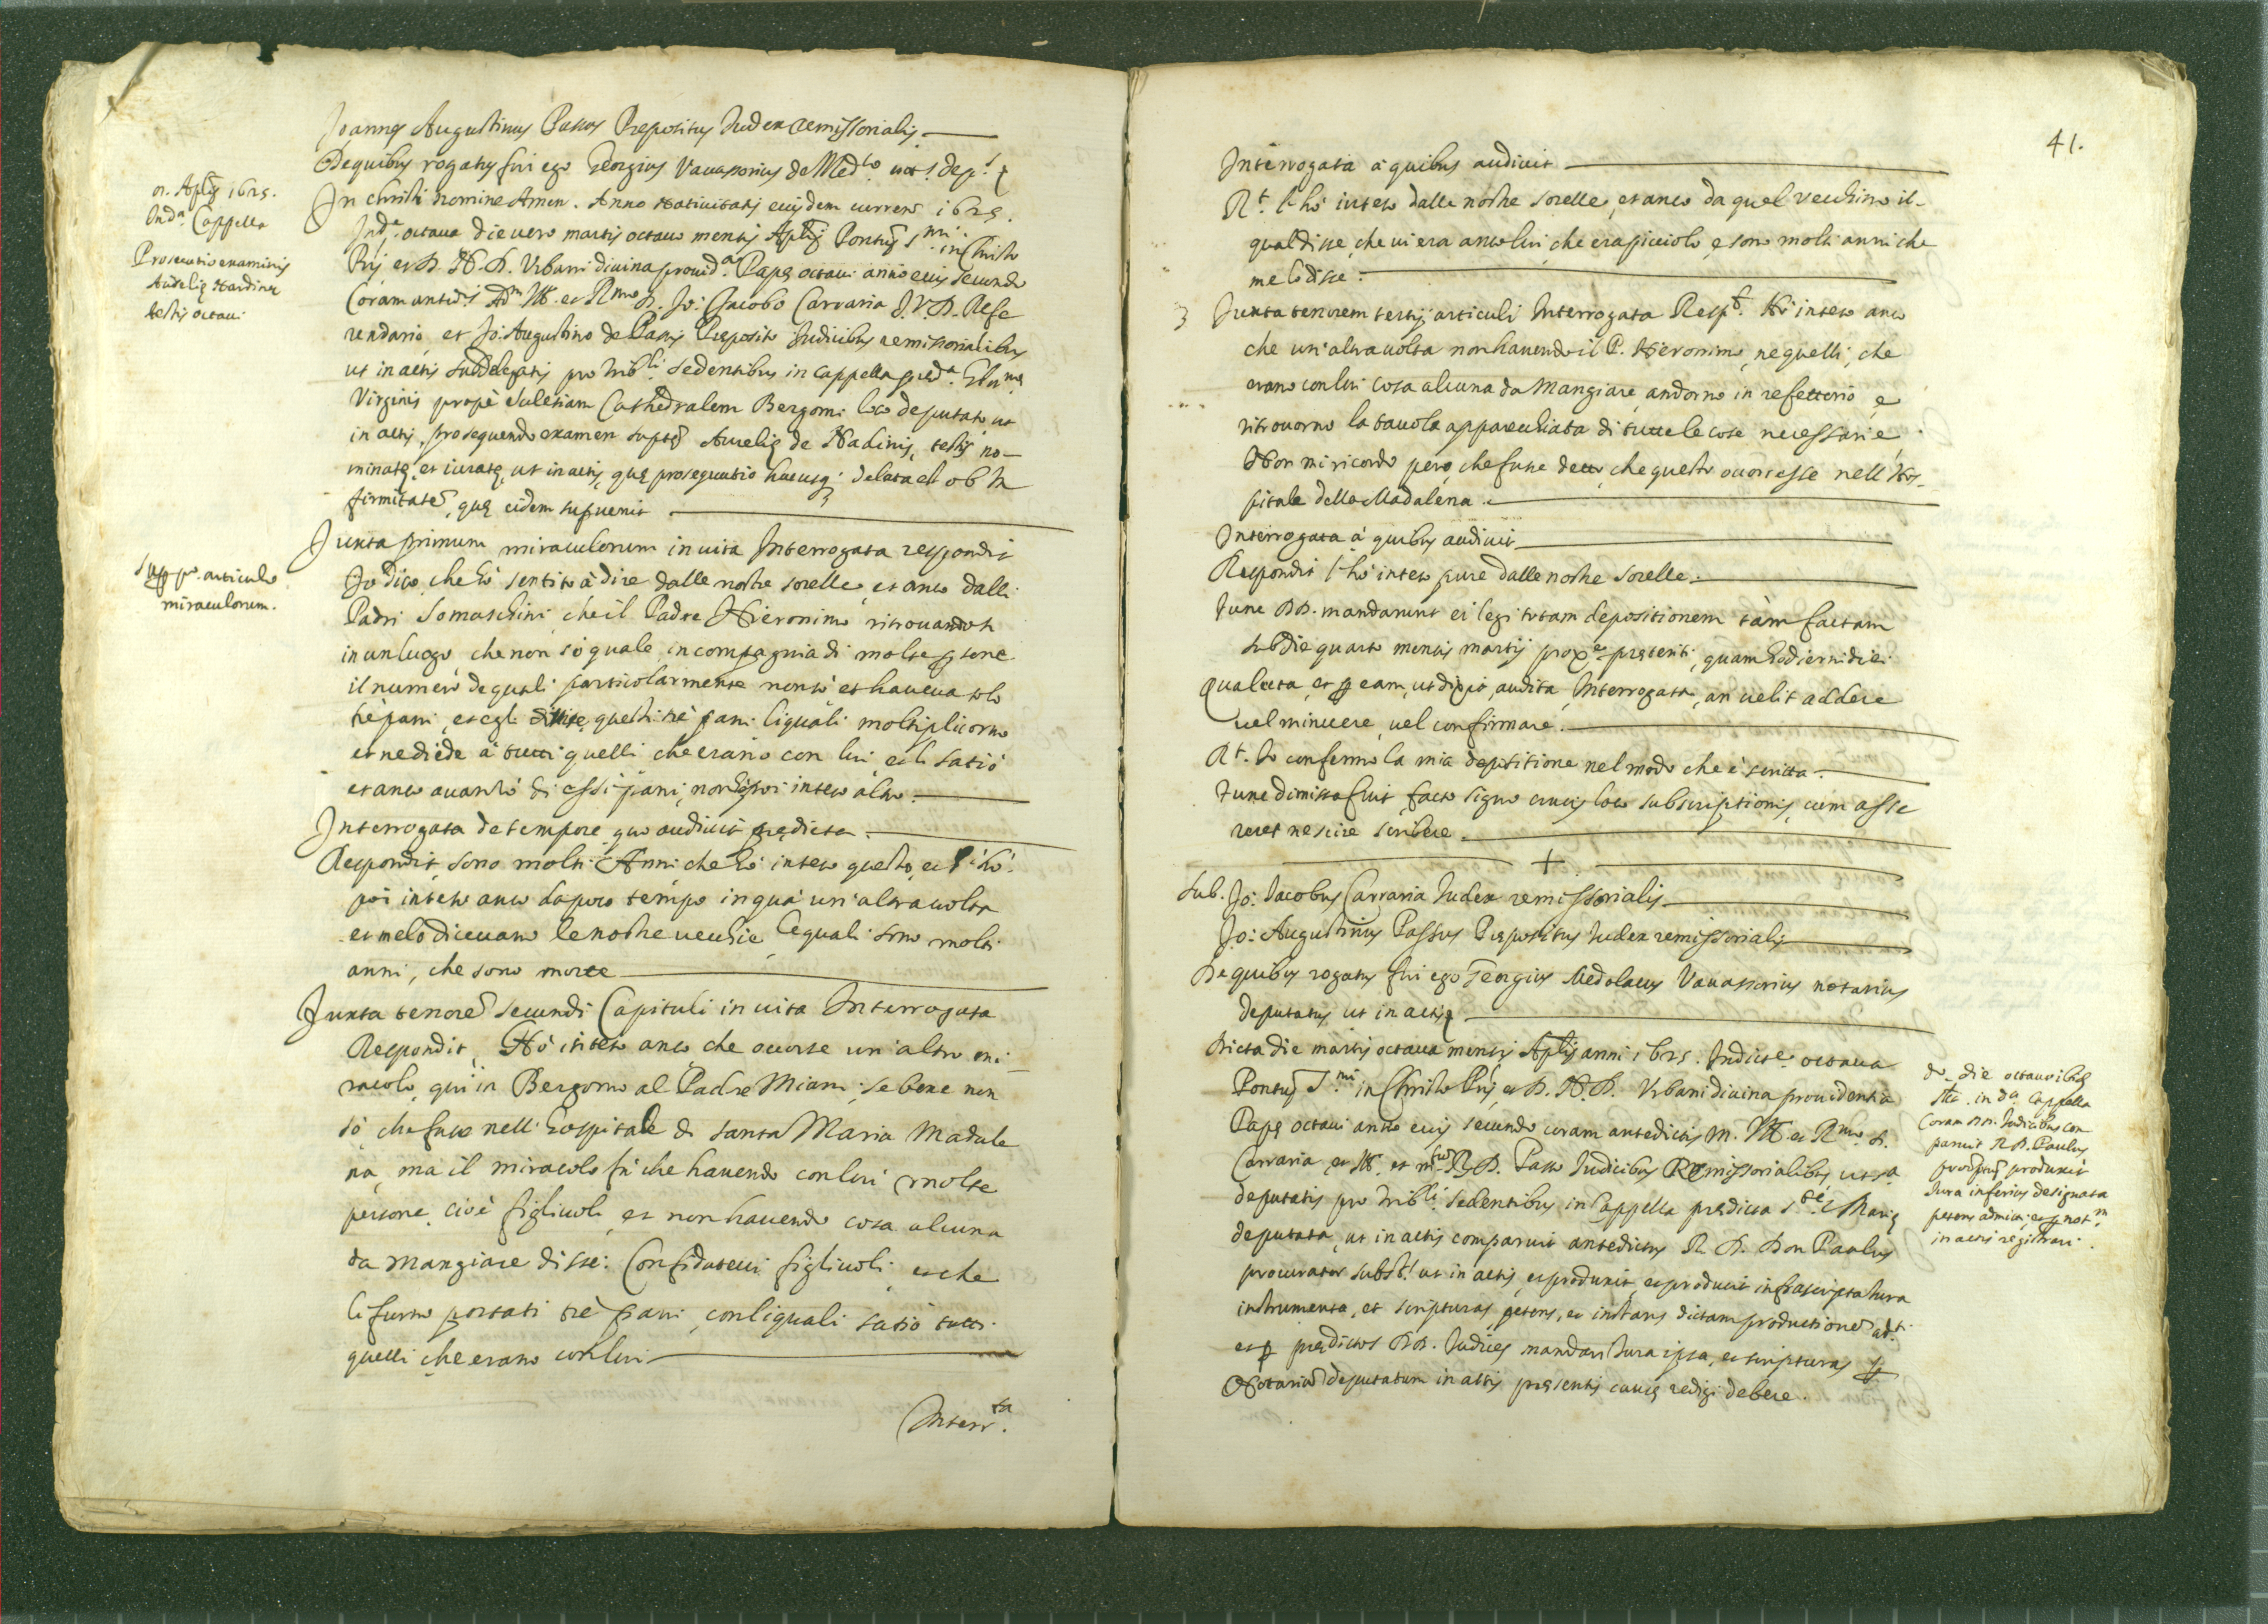 Joannes Augustinus Passus Prepositus Judex remissorialis
De quibus rogatus fui ego Georgius Vavassorius de Med.co not.s dep.s
8. Aplis 1625.
In d.a Cappella
Prosecutio examinis
Aurelię Nardinę
testis octavi
In Christi nomine Amen. Anno Nativitatis eiusdem currente 1625.
Ind.e octava die vero martis octavo mensis Aplis Pontus S.mi in Christo
Pris et D. N. D. Urbani divina provid.a Papę octavi anno eius secundo
Coram anted.s Ad.m Ill. et R.mo D. Jo: Jacobo Carraria J.V.D. Refe
rendario, et Jo: Augustino de Passis Preposito Judicibus remissorialibus
ut in actis subdelegatis pro trib.li sedentibus in cappella pred.a Glor.mę
Virginis propè Eclesiam Cathedralem Bergomi loco deputato ut
in actis, prosequendo examen suptę Aurelię de Nadinis, testis no-
minatę, et iuratę, ut in actis, quę prosequutio hucusq; delata est ob in
firmitatē, quę eidem supvenit
Sup p.o articulo
miraculorum.
Juxta primum miraculorum in vita Interrogata respondit
Io dico che hò sentito à dire dalle nostre sorelle, et anco dalli
Padri Somaschini che il Padre Hieronimo ritrovandosi
in un luogo, che non sò quale, in compagnia di molte psone
il numero de quali particolarmente non sò et haveva solo
trè pani, et egli divise questi trè pani liquali moltiplicorno
et ne diede à tutti quelli che erano con lui, et li satiò
et anco avanzò di essi pani, non hò poi inteso altro.
Interrogata de tempore quo audivit prędicta.
Respondit, sono molti Anni che hò inteso questo, et l'hò
poi inteso anco da poco tempo in quà un' altra volta
et me lo dicevano le nostre vecchie, lequali sono molti
anni, che sono morte
Juxta tenorē secundi Capituli in vita Interrogata
Respondit, Hò inteso anco, che occorse un' altro mi-
racolo quì in Bergomo al Padre Miani; se bene non
sò che fusse nell' hospitale di santa Maria Madale
na, ma il miracolo fù che havendo con lui molte
persone, cioè figliuoli, et non havendo cosa alcuna
da mangiare disse: Confidatevi figliuoli, et che
li furno portati trè pani, con liquali satiò tutti
quelli che erano con lui
Interr.ta
41.
Interrogata à quibus audivit
R.t l'hò inteso dalle nostre sorelle, et anco da quel vecchino il-
qual disse, che vi era anco lui, che era picciolo, e sono molti anni che
me lo disse.
3 Juxta tenorem tertij articuli Interrogata Resp.t Hò inteso anco
che un' altra volta non havendo il P. Hieronimo, ne quelli, che
erano con lui cosa alcuna da mangiare, andorno in refettorio, e
ritrovorno la tavola apparecchiata di tutte le cose necessarie.
Non mi ricordo però, che fusse detto, che questo occorresse nell' Hos-
pitale della Madalena.
Interrogata à quibus audivit
Respondit l'hò inteso pure dalle nostre sorelle.
Tunc DD. mandarunt ei legi totam depositionem tàm factam
sub die quarto mensis martij prox.e pręteriti, quam hodierni diei
Qua lecta, et p eam, ut dixit, audita, Interrogata, an velit addere
vel minuere, vel confirmare.
R.t Io confermo la mia depositione nel modo che è scritta.
Tunc dimissa fuit, facto signo crucis loco subscriptionis, cum asse
reret nescire scribere.
+
Sub. Jo: Jacobus Carraria Judex remissorialis
Jo: Augustinus Passus Prępositus Judex remissorialis
De quibus rogatus fui ego Georgius Medolacus Vavassorius notarius
deputatus ut in actis
Dicta die martis octava mensis Aplis anni 1625. Indict.e octava
Pontus S.mi in Christo Pris et D. N. D. Urbani divina providentia
Papę octavi anno eius secundo coram antedictis M. Ill. et R.mo D.
Carraria, et Ill. et m.to R. D. Passo Judicibus Remissorialibus ut s.a
deputatis pro trib.li sedentibus in Cappella prędicta S.tę Marię
deputata, ut in actis comparuit antedictus R. D. Don Paulus
procurator subst.s ut in actis, et produxit, et producit infrascripta Iura
instrumenta, et scripturas, petens, et instans dictam productionē ad.ti
et p prędictos DD. Judices mandari Iura ipsa, et scripturas p
Notariū deputatum in actis pręsentis causę redigi debere.
d.o die octavo ibid
stē. in d.a Cappella
Coram DD. Judicibus com
paruit R. D. Paulus
produxit
Iura inferius designata
petens admitti et p not.m
in actis registrari.